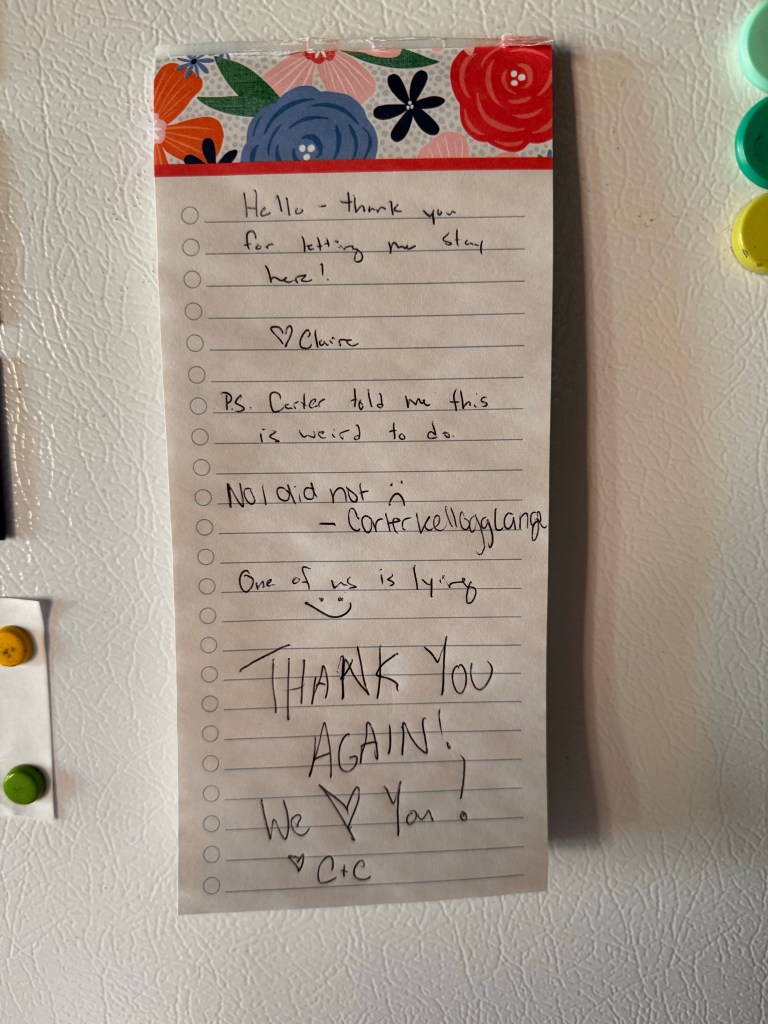 Hello - thank you
for letting me stay
here!
♡ Claire
P.S. Carter told me this
is weird to do.
No I did not :(
- Carter Kellogg Lange
One of us is lying
:)
THANK YOU
AGAIN!
We ♡ You!
♡ C+C